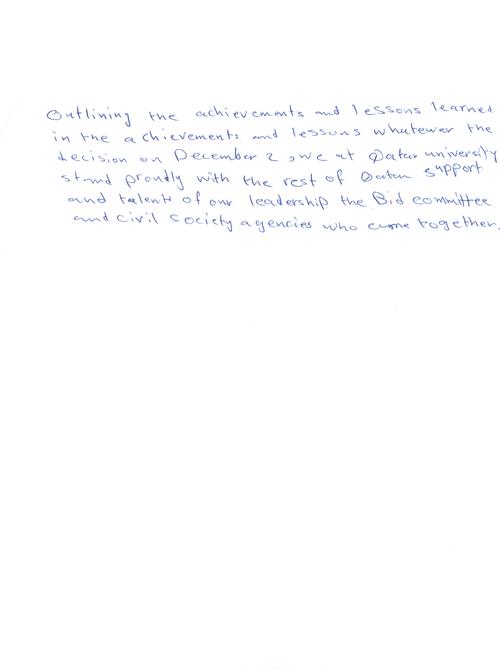 Outlining the achievements and lessons learned
in the achievements and lessons whatewer the
decision on December 2, we at Qatar university
stand proudly with the rest of Qatar support
and talent of our leadership the Bid committee
and civil society agencies who came together.